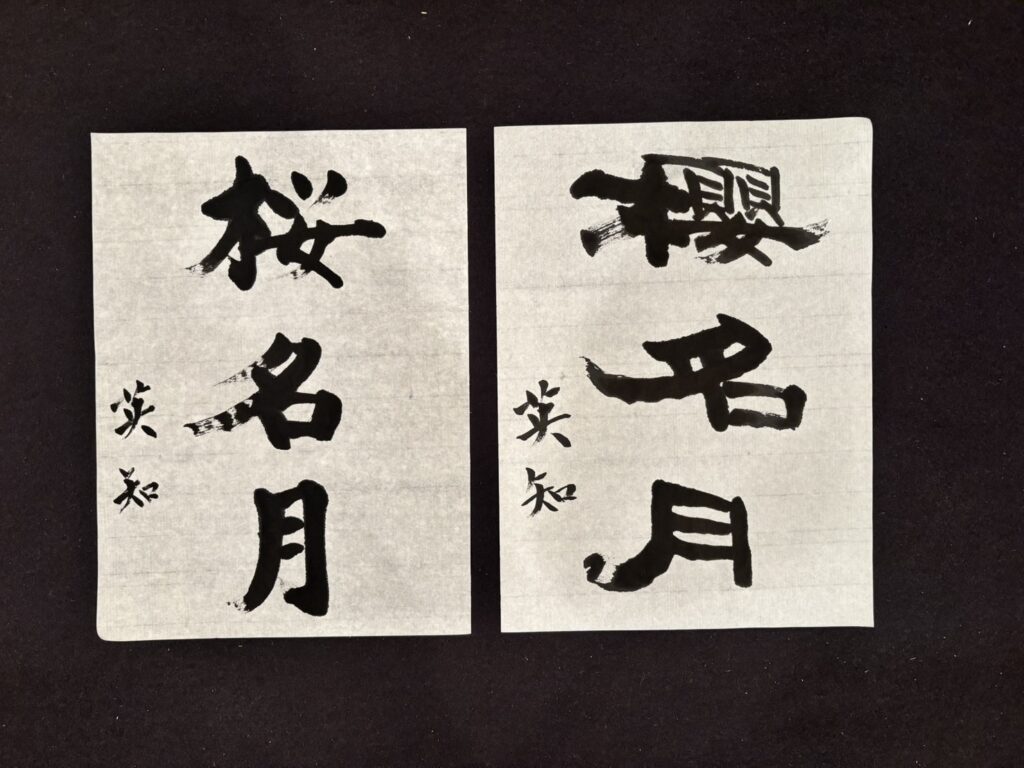 櫻名月
英知
桜名月
英知